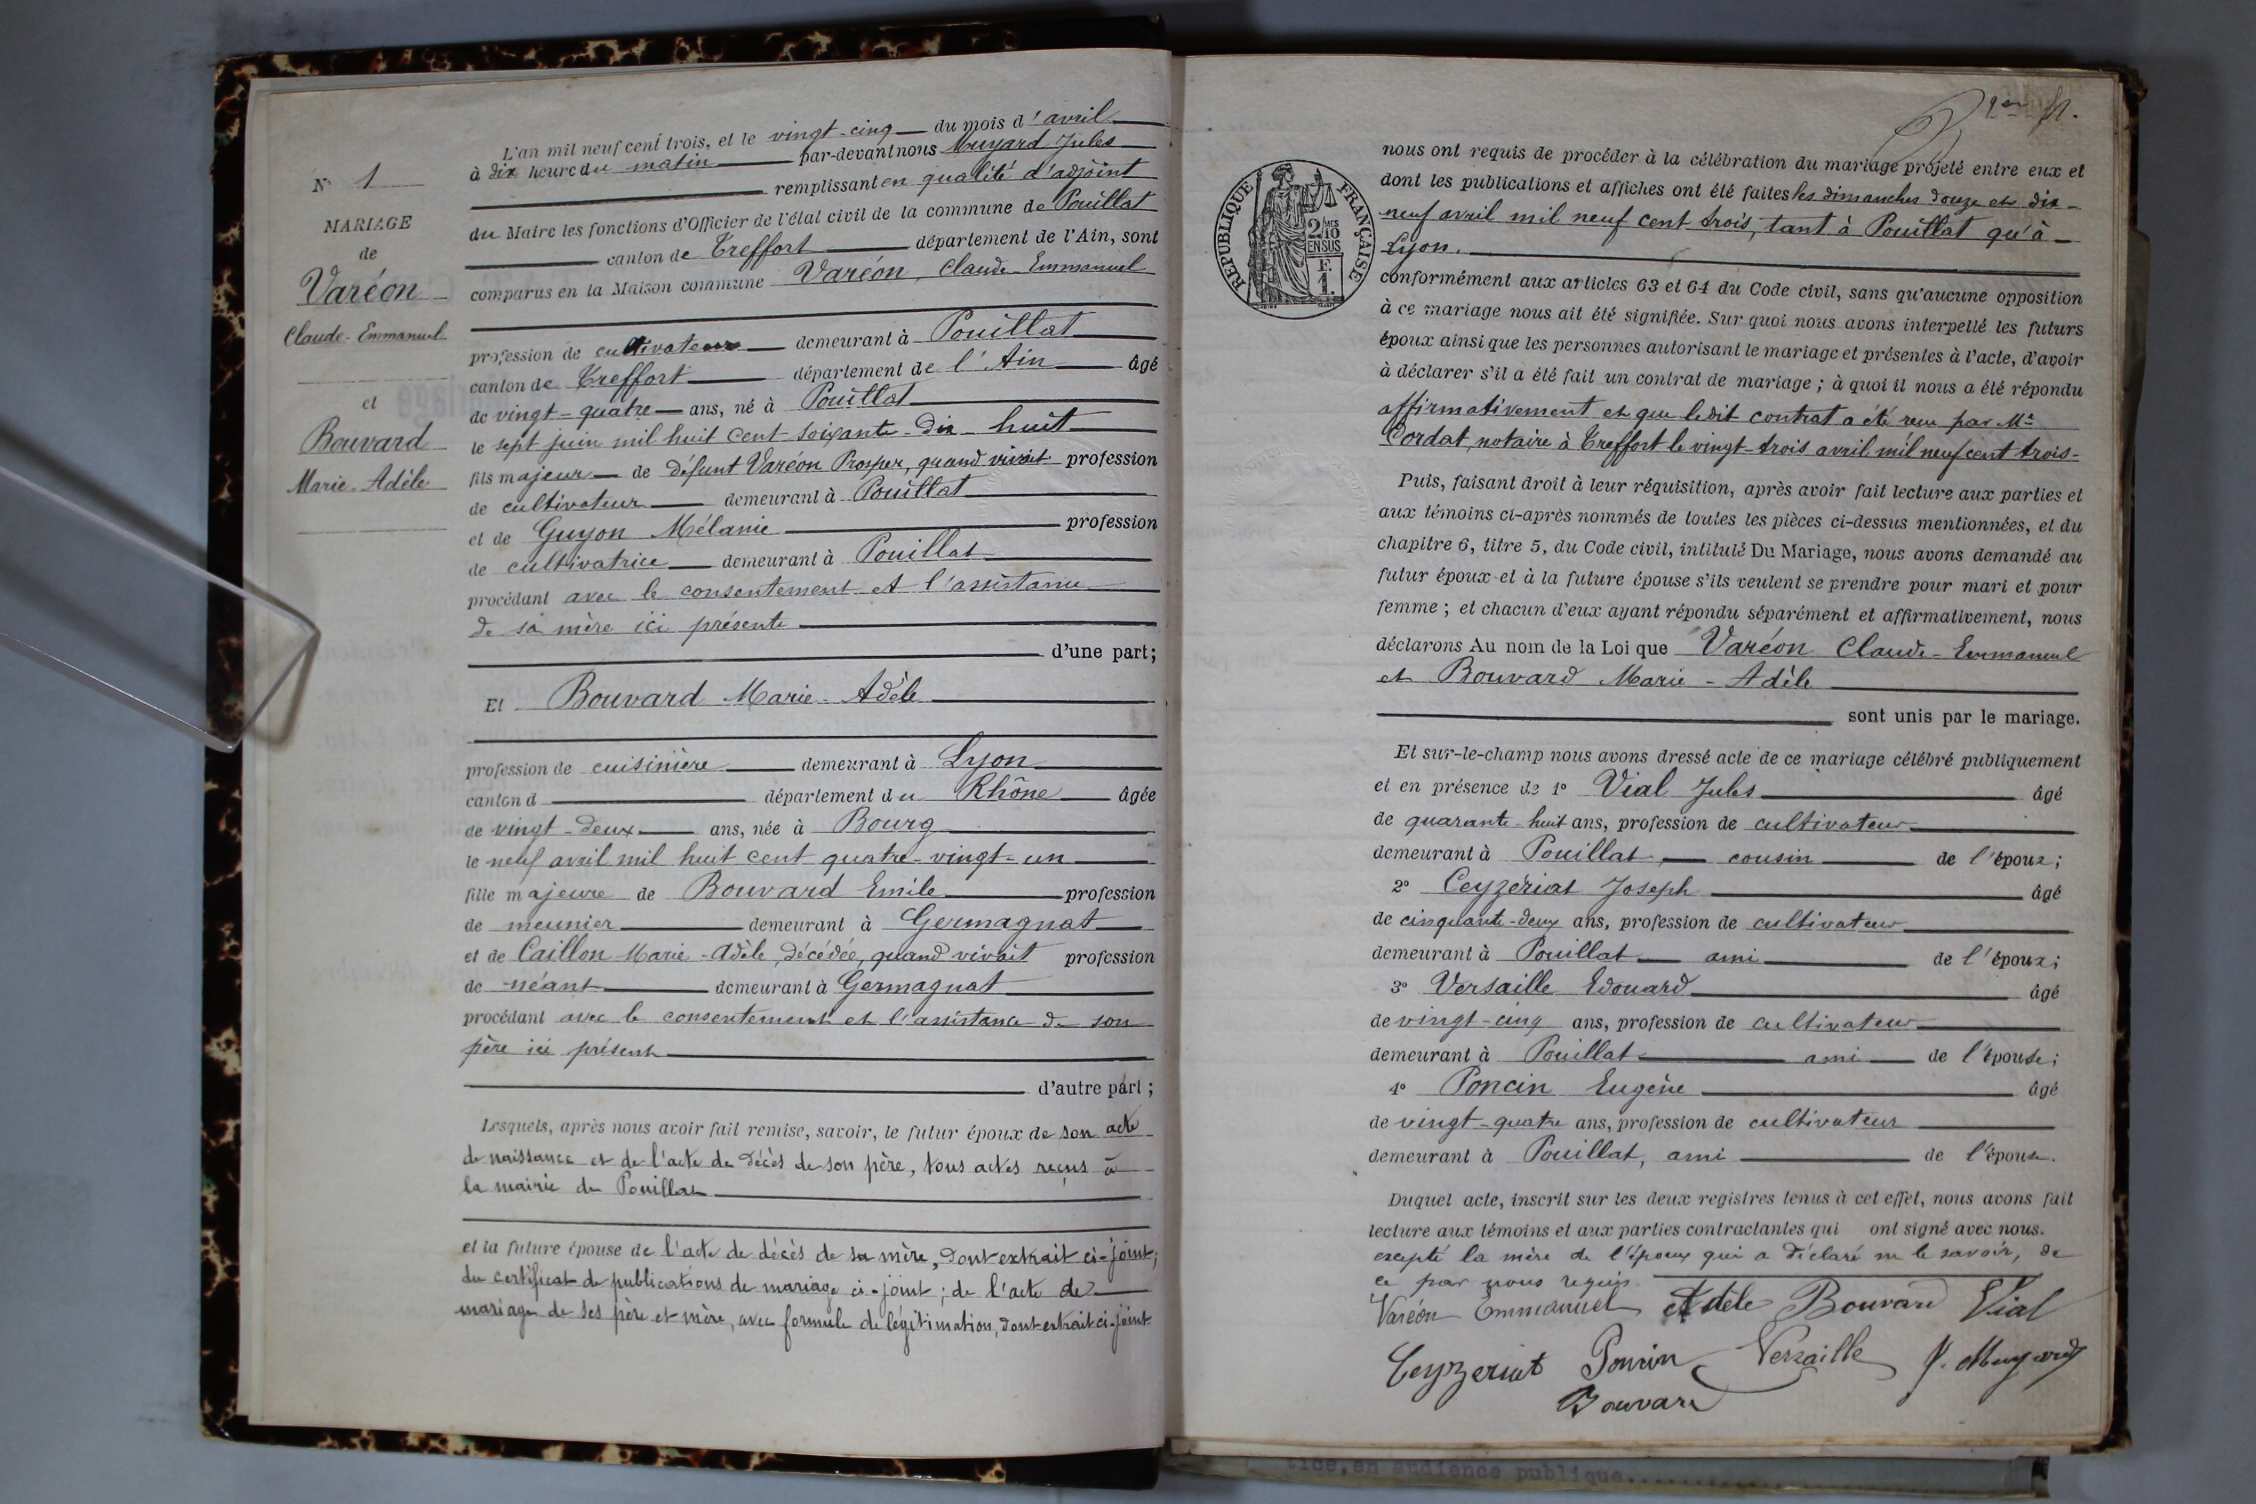 N° 1
MARIAGE
de
Varéon
Claude-Emmanuel
et
Bouvard
Marie-Adèle
L'an mil neuf cent trois, et le vingt-cinq du mois d'avril
à dix heure du matin par-devant nous Muyard Jules
remplissant en qualité d'adjoint
du Maire les fonctions d'Officier de l'état civil de la commune de Pouillat
canton de Treffort département de l'Ain, sont
comparus en la Maison commune Varéon, Claude-Emmanuel
profession de cultivateur demeurant à Pouillat
canton de Treffort département de l'Ain âgé
de vingt-quatre ans, né à Pouillat
le sept juin mil huit cent soixante-dix-huit
fils majeur de défunt Varéon Prosper, quand vivait profession
de cultivateur demeurant à Pouillat
et de Guyon Mélanie profession
de cultivatrice demeurant à Pouillat
procédant avec le consentement et l'assistance
de sa mère ici présente
d'une part;
Et Bouvard Marie-Adèle
profession de cuisinière demeurant à Lyon
canton d département du Rhône âgée
de vingt-deux ans, née à Bourg
le neuf avril mil huit cent quatre-vingt-un
fille majeure de Bouvard Emile profession
de meunier demeurant à Germagnat
et de Caillon Marie-Adèle, décédée, quand vivait profession
de néant demeurant à Germagnat
procédant avec le consentement et l'assistance de son
père ici présent
d'autre part;
Lesquels, après nous avoir fait remise, savoir, le futur époux de son acte
de naissance et de l'acte de décès de son père, tous actes reçus à
la mairie de Pouillat
et la future épouse de l'acte de décès de sa mère, dont extrait ci-joint;
du certificat de publications de mariage ci-joint; de l'acte de
mariage de ses père et mère, avec formule de légitimation, dont extrait ci-joint
RÉPUBLIQUE FRANÇAISE
2/10MES
EN SUS
F.
1.
nous ont requis de procéder à la célébration du mariage projeté entre eux et
dont les publications et affiches ont été faites les dimanches douze et dix-
neuf avril mil neuf cent trois, tant à Pouillat qu'à
Lyon.
conformément aux articles 63 et 64 du Code civil, sans qu'aucune opposition
à ce mariage nous ait été signifiée. Sur quoi nous avons interpellé les futurs
époux ainsi que les personnes autorisant le mariage et présentes à l'acte, d'avoir
à déclarer s'il a été fait un contrat de mariage; à quoi il nous a été répondu
affirmativement et que ledit contrat a été reçu par Me
Cordat, notaire à Treffort le vingt-trois avril mil neuf cent trois-
Puis, faisant droit à leur réquisition, après avoir fait lecture aux parties et
aux témoins ci-après nommés de toutes les pièces ci-dessus mentionnées, et du
chapitre 6, titre 5, du Code civil, intitulé Du Mariage, nous avons demandé au
futur époux et à la future épouse s'ils veulent se prendre pour mari et pour
femme; et chacun d'eux ayant répondu séparément et affirmativement, nous
déclarons Au nom de la Loi que Varéon Claude-Emmanuel
et Bouvard Marie-Adèle
sont unis par le mariage.
Et sur-le-champ nous avons dressé acte de ce mariage célébré publiquement
et en présence de 1° Vial Jules âgé
de quarante-huit ans, profession de cultivateur
demeurant à Pouillat, cousin de l'époux;
2° Ceyzériat Joseph âgé
de cinquante-deux ans, profession de cultivateur
demeurant à Pouillat ami de l'époux;
3° Versaille Edouard âgé
de vingt-cinq ans, profession de cultivateur
demeurant à Pouillat ami de l'épouse;
4° Poncin Eugène âgé
de vingt-quatre ans, profession de cultivateur
demeurant à Pouillat, ami de l'épouse.
Duquel acte, inscrit sur les deux registres tenus à cet effet, nous avons fait
lecture aux témoins et aux parties contractantes qui ont signé avec nous.
excepté la mère de l'époux qui a déclaré ne le savoir, de
ce par nous requis.
Varéon Emmanuel Adèle Bouvard Vial
Ceyzeriat Poncin Versaille J. Muyard
Bouvard
tice, en audience publique